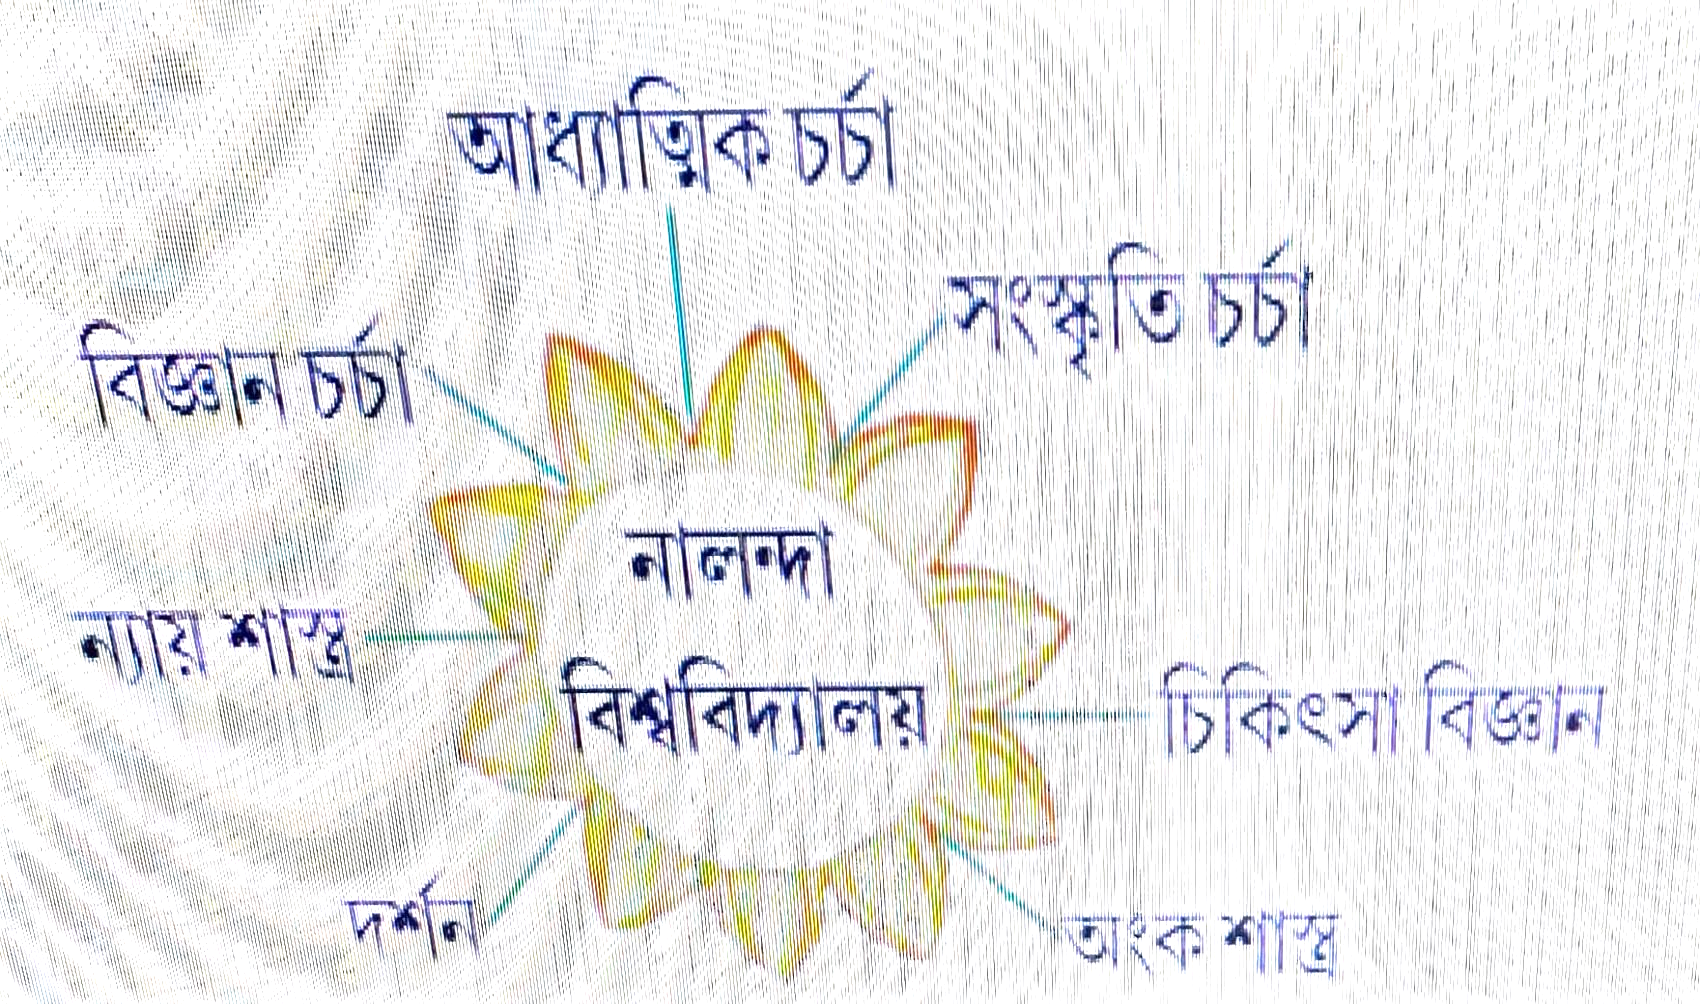 আধ্যাত্মিক চর্চা
সংস্কৃতি চর্চা
বিজ্ঞান চর্চা
নালন্দা
বিশ্ববিদ্যালয়
ন্যায় শাস্ত্র
চিকিৎসা বিজ্ঞান
দর্শন
অংক শাস্ত্র